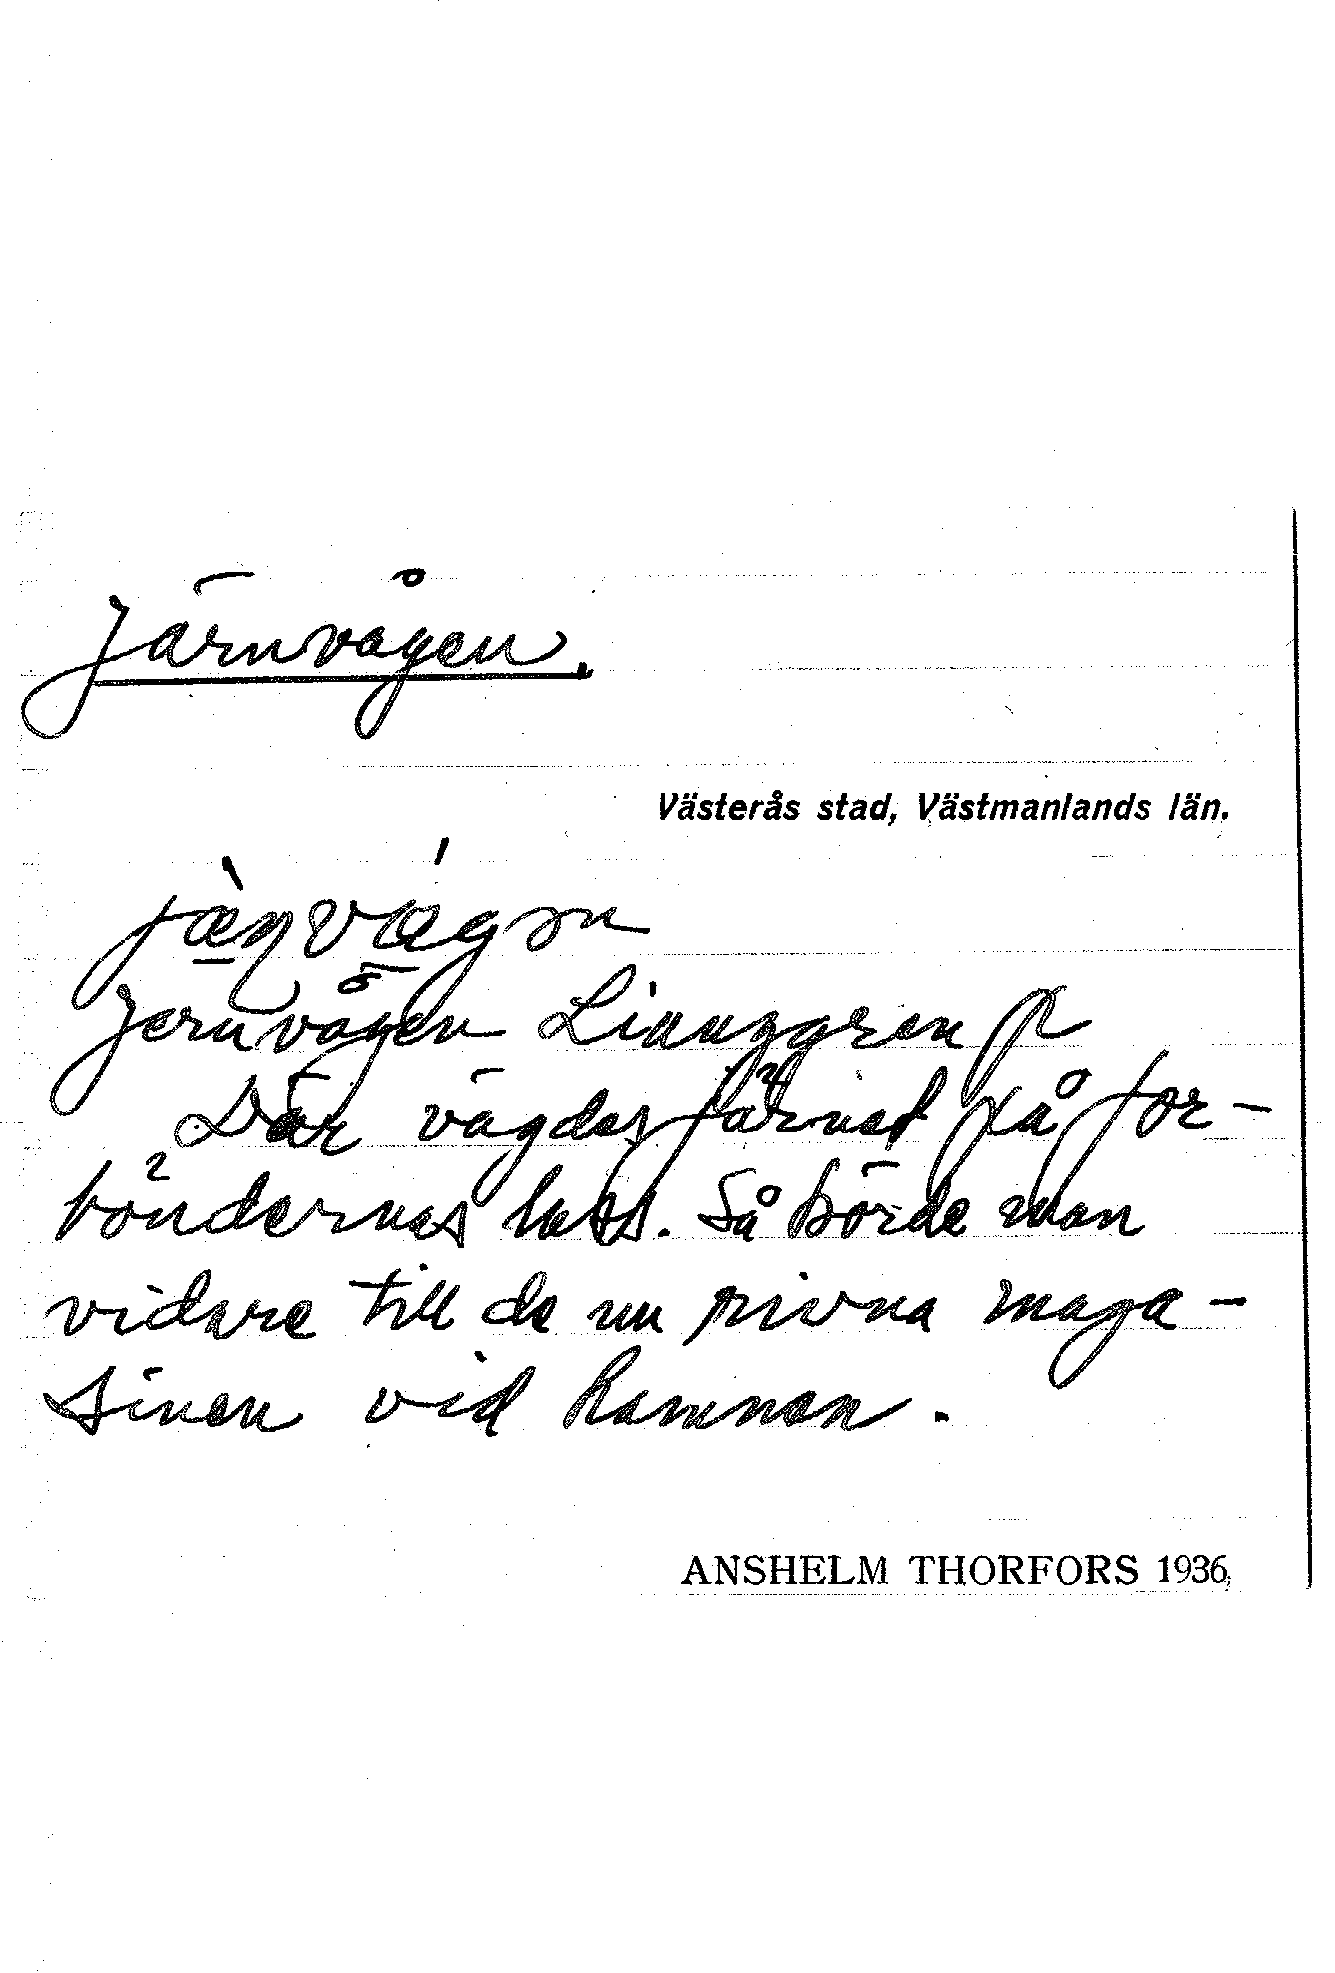 Järnvågen.
Västerås stad, Västmanlands län.
jæ̀ɳvágən
Jernvågen Linnggren
Där vägdes järnet på for-
böndernas lass. Så körde man
vidare till de nu rivna maga-
sinen vid hamnen.
ANSHELM THORFORS 1936